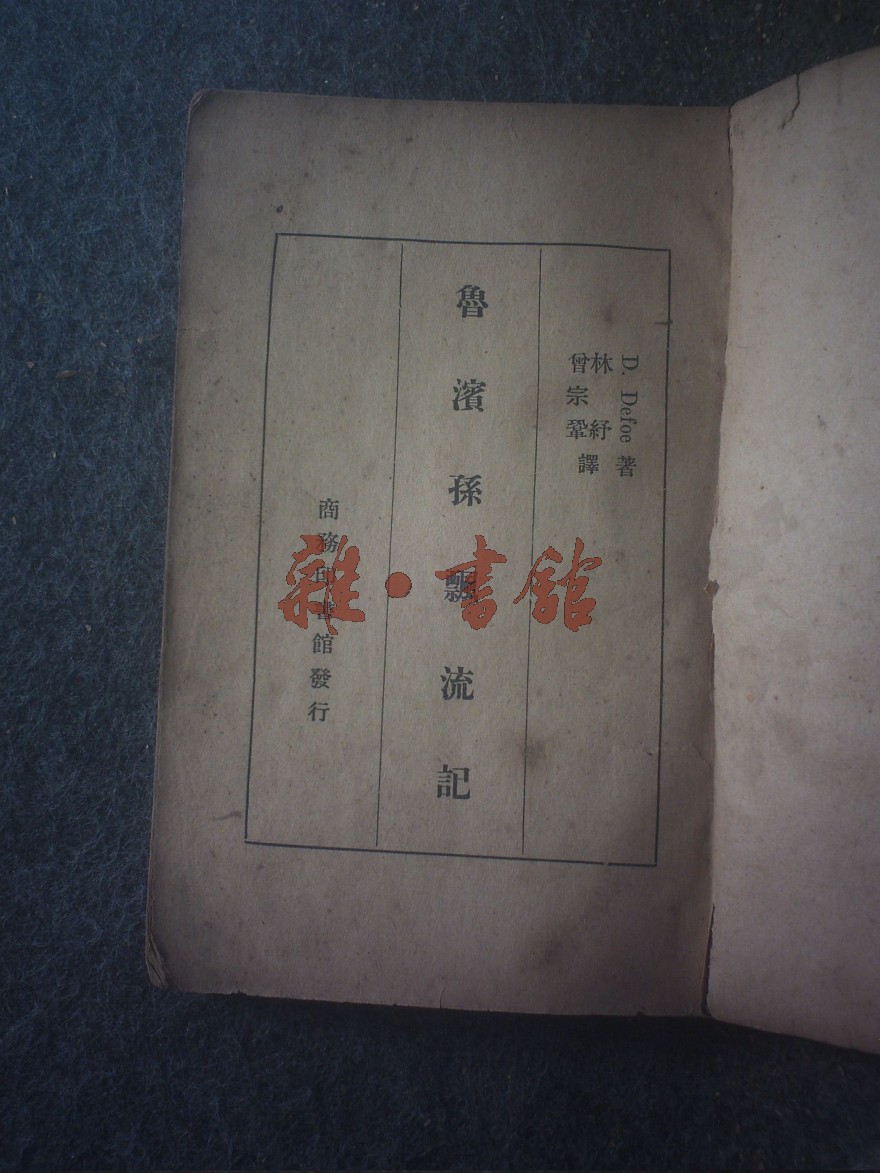 D. Defoe 著
林紓
曾宗鞏
譯
魯濱孫飄流記
商務印書館發行
雜·書館